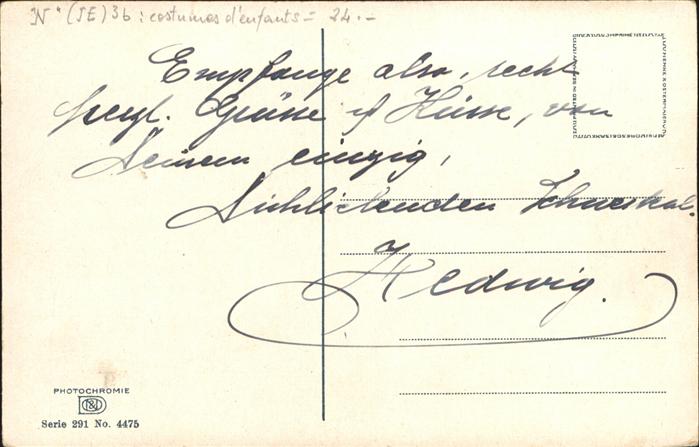 N° (SE) 36 : costumes d'enfants = 24.-
Empfange also, recht
herzl. Grüsse & Küsse, von
Deinem einzig,
Dichliebenden
Hedwig.
PHOTOCHROMIE
Serie 291 No. 4475